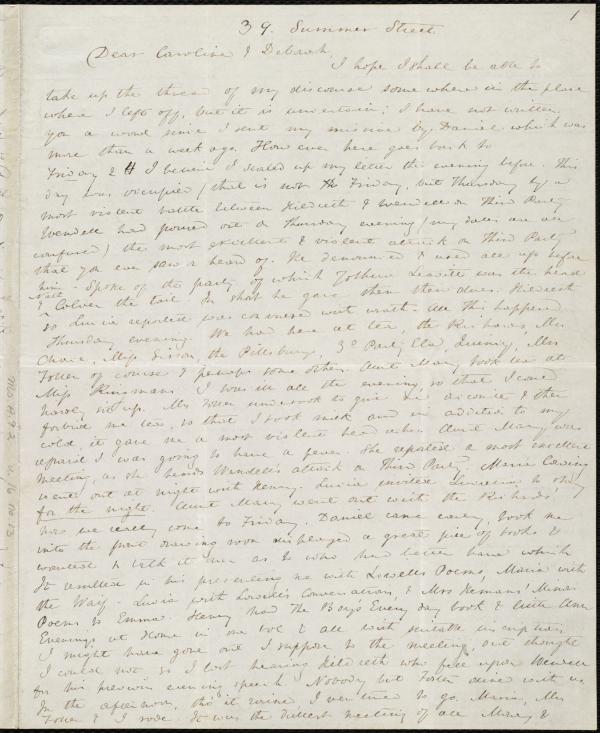 1
39. Summer Street
Dear Caroline & Deborah,
I hope I shall be able to
take up the thread of my discourse some where in the place
where I left off, but it is uncertain; I have not written
you a word since I sent my missive by Daniel which was
more than a week ago. However here goes back to
Friday I believe I sealed up my letter the evening before. This
day was occupied (that is not Friday, but Thursday by a
most violent battle between Hildreth & Wendell on Third Party
Wendell had poured out on Thursday evening (my dates are all
confused) the most excellent & violent attack on Third Party
that you ever saw or heard of. He denounced & used all up before
him - Spoke of the party of which Joshua Leavitt was the head
& Colver the tail. In short he gave them their dues. Hildreth
so Lucia reported was convulsed with wrath. All this happened
Thursday evening. We had here at tea, the Richards, Mrs
Chace, Miss Sisson, the Pillsburys, 3d Party Ela, Quincy, Mrs
Follen of course & perhaps some others. Aunt Mary took tea at
Miss Kinsmans. I was in all the evening so that I could
hardly sit up. Mrs Follen undertook to give me aconite & then
forbid me tea, so that I took milk and in addition to my
cold it gave me a most violent head ache. Aunt Mary was
afraid I was going to have a fever. She repeated a most excellent
meeting, as she heard Wendells attack on Third Party. Maria
went out at night with Henry. Lucia invited to stay
for the night. Aunt Mary went out with the Richards'
Now we really come to Friday. Daniel came early, took me
into the front drawing room a great pile of books &
wanted to talk it over as to who had better have which
It resulted in his presenting me with Lowells Poems, Maria with
the Waif - Lucia with Lowells Conversations, & Mrs Hemans' Minor
Poems to Emma. Henry had The Boys Every day book & little Ann
Evenings at Home in one vol & all with suitable inscriptions
I might have gone out I suppose to the meeting, but thought
I could not so I lost hearing Hildreth who fell upon Wendell
for his previous evening speech. Nobody but Follen dined with us
In the afternoon, tho' it rained I ventured to go. Maria, Mrs
Follen & I rode. It was the dullest meeting of all. Mary &